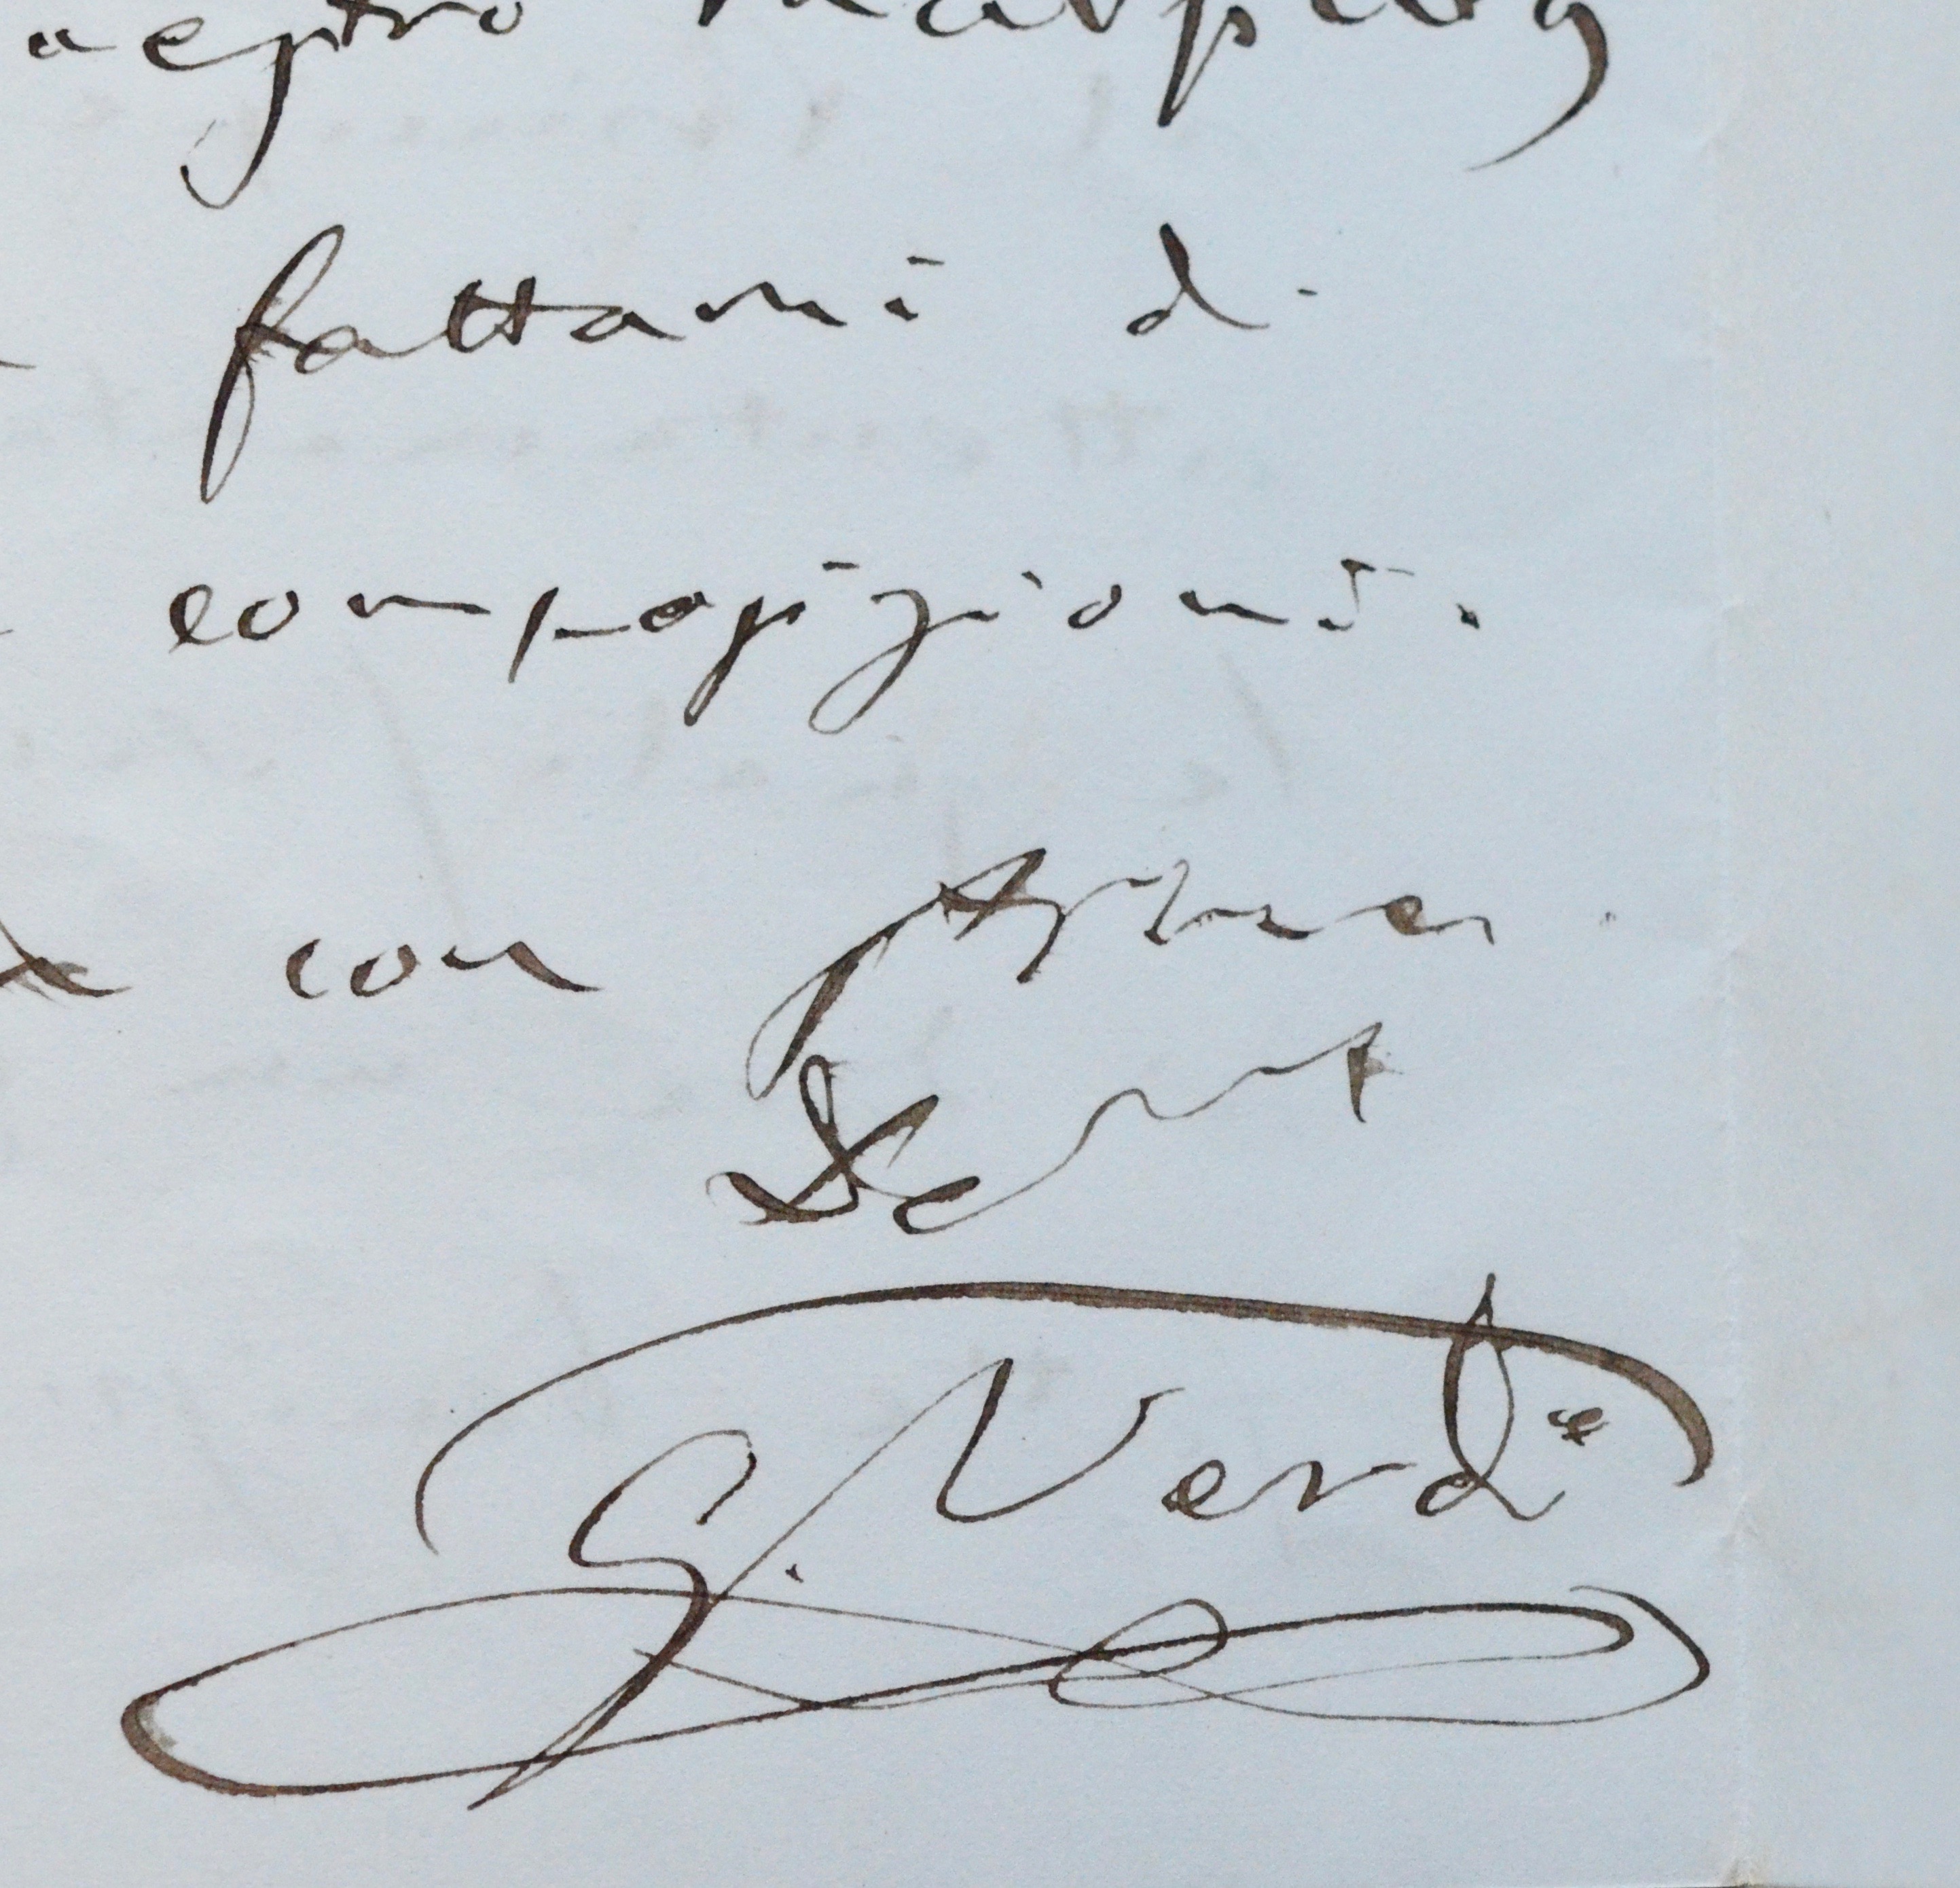 aestro
fattami di
composizioni.
con stima
Devt
G. Verdi